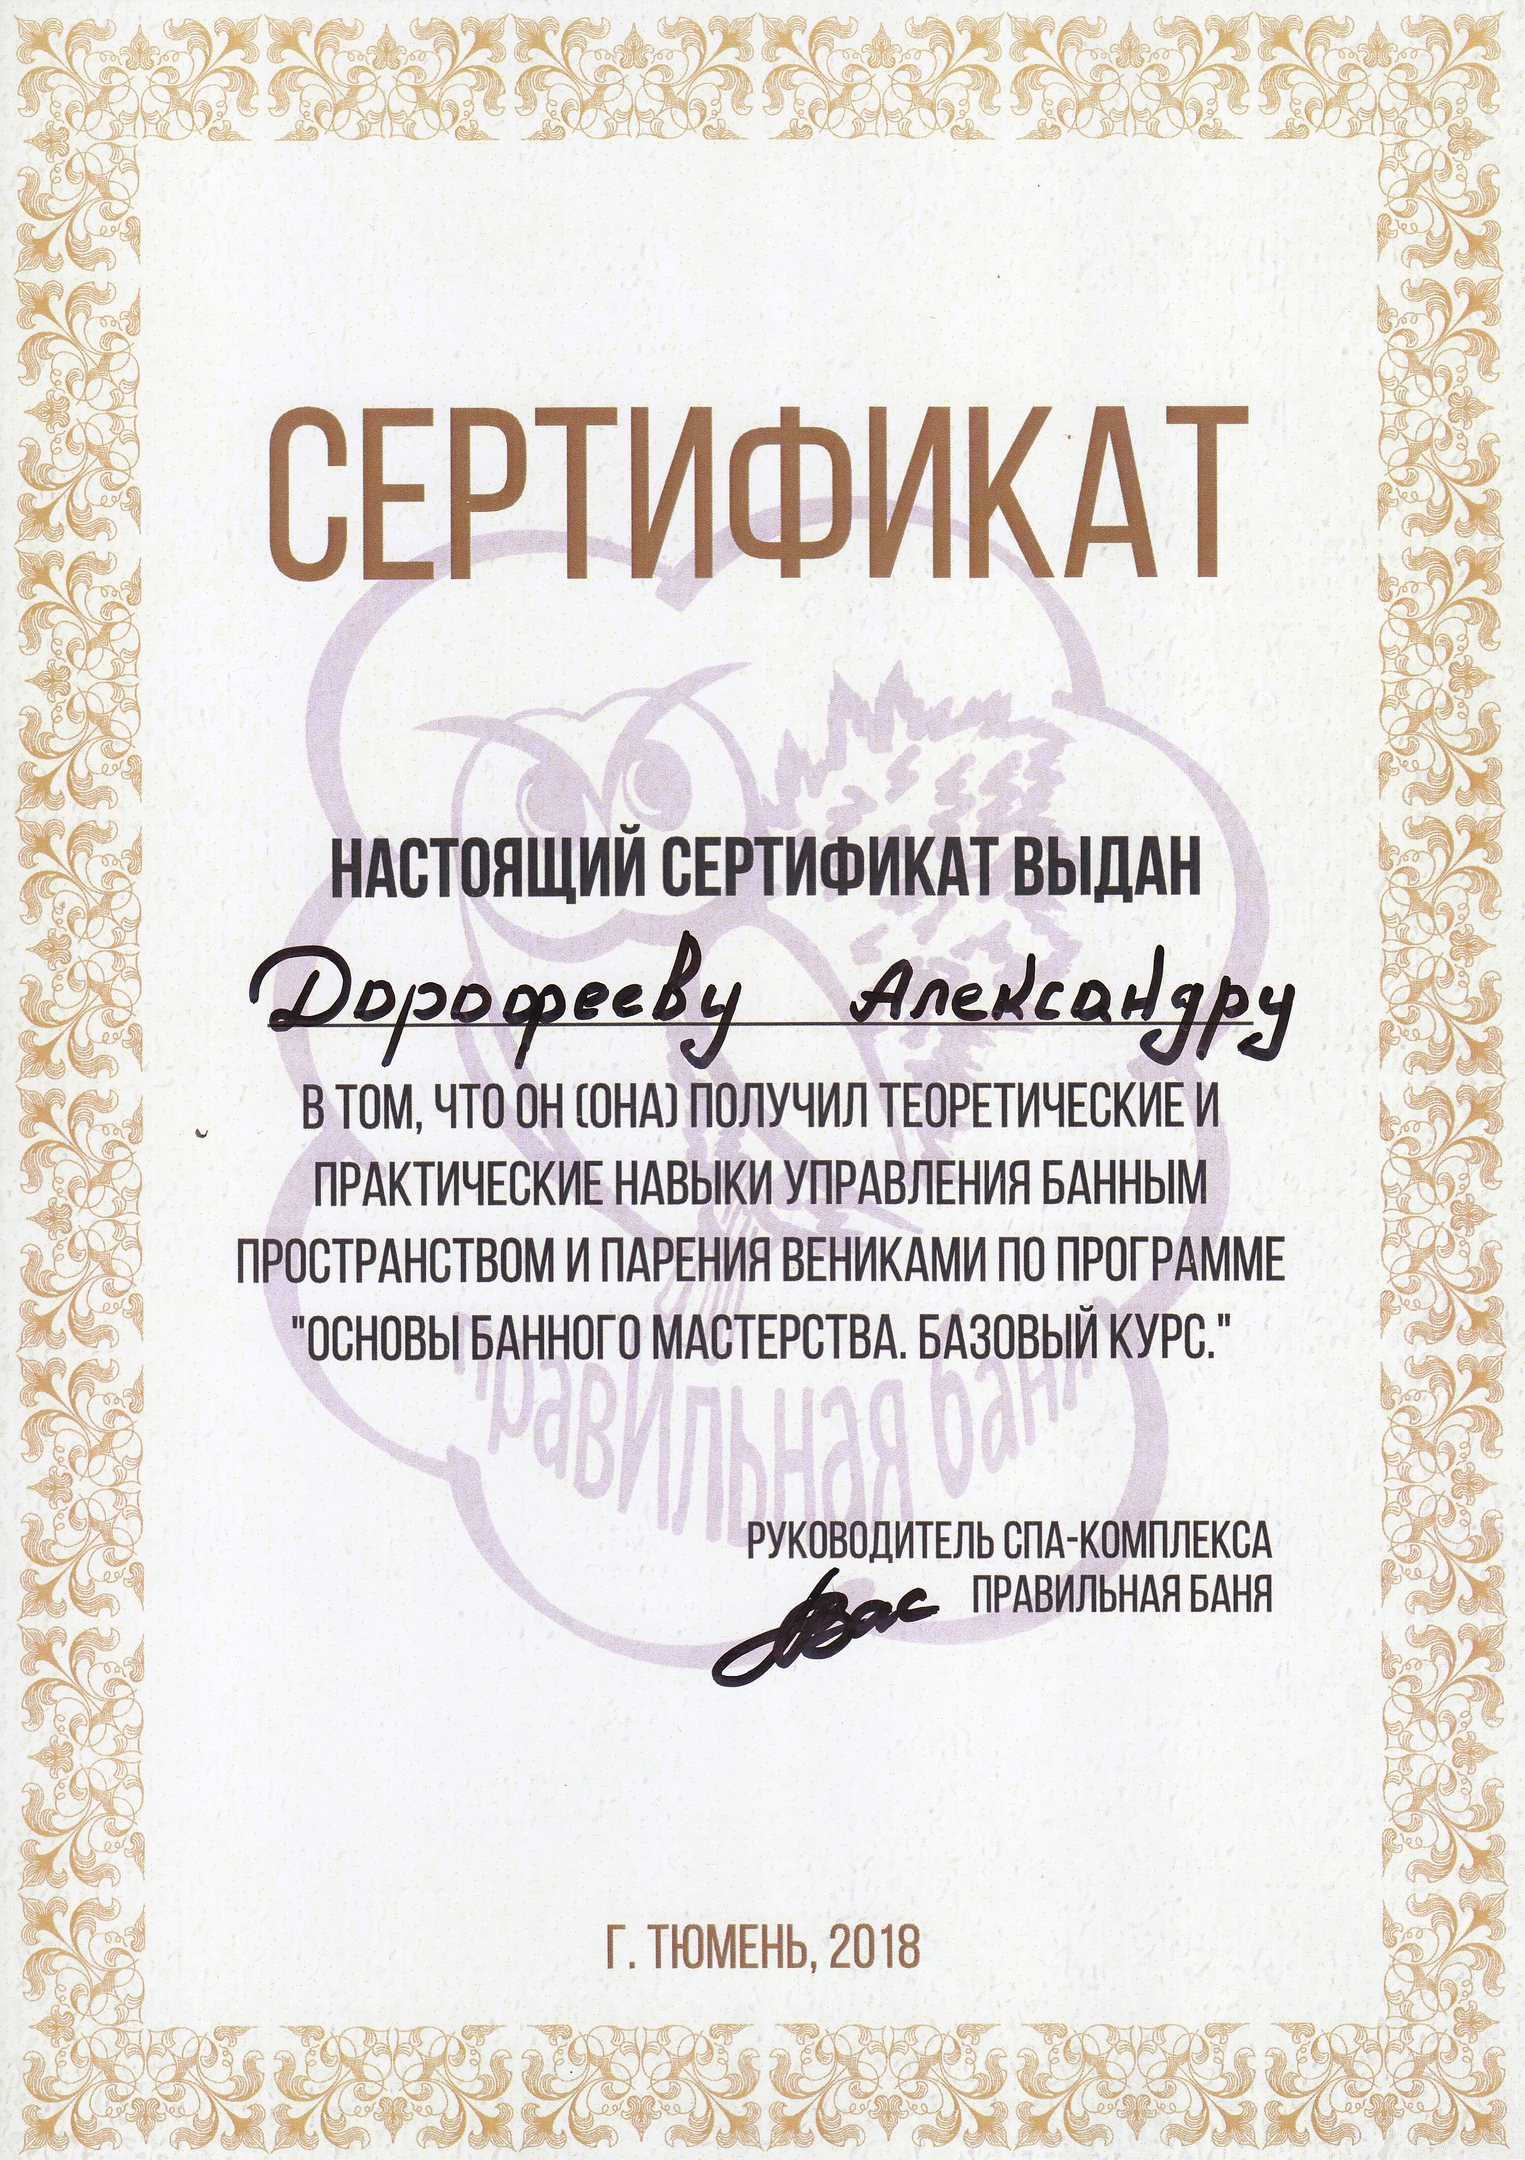 СЕРТИФИКАТ
НАСТОЯЩИЙ СЕРТИФИКАТ ВЫДАН
Дорофееву Александру
В ТОМ, ЧТО ОН (ОНА) ПОЛУЧИЛ ТЕОРЕТИЧЕСКИЕ И
ПРАКТИЧЕСКИЕ НАВЫКИ УПРАВЛЕНИЯ БАННЫМ
ПРОСТРАНСТВОМ И ПАРЕНИЯ ВЕНИКАМИ ПО ПРОГРАММЕ
"ОСНОВЫ БАННОГО МАСТЕРСТВА. БАЗОВЫЙ КУРС."
правильная баня
РУКОВОДИТЕЛЬ СПА-КОМПЛЕКСА
ПРАВИЛЬНАЯ БАНЯ
Г. ТЮМЕНЬ, 2018